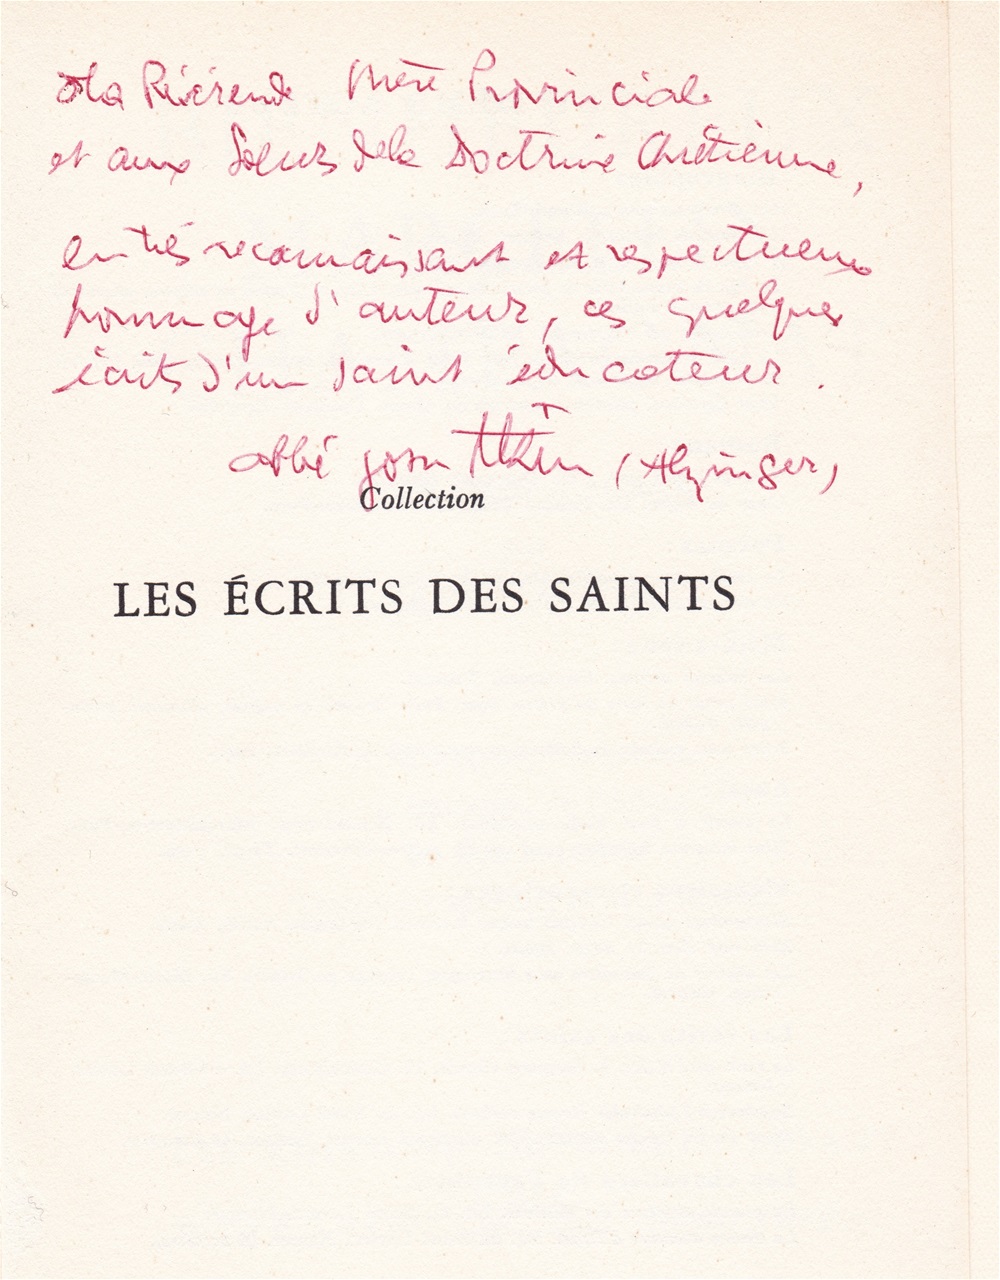 à la Révérende Mère Provinciale
et aux Soeurs de la Doctrine Chrétienne,
en très reconnaissant et respectueux
hommage d'auteur, ces quelques
écrits d'un saint éducateur.
abbé (Alzinger)
Collection
LES ÉCRITS DES SAINTS